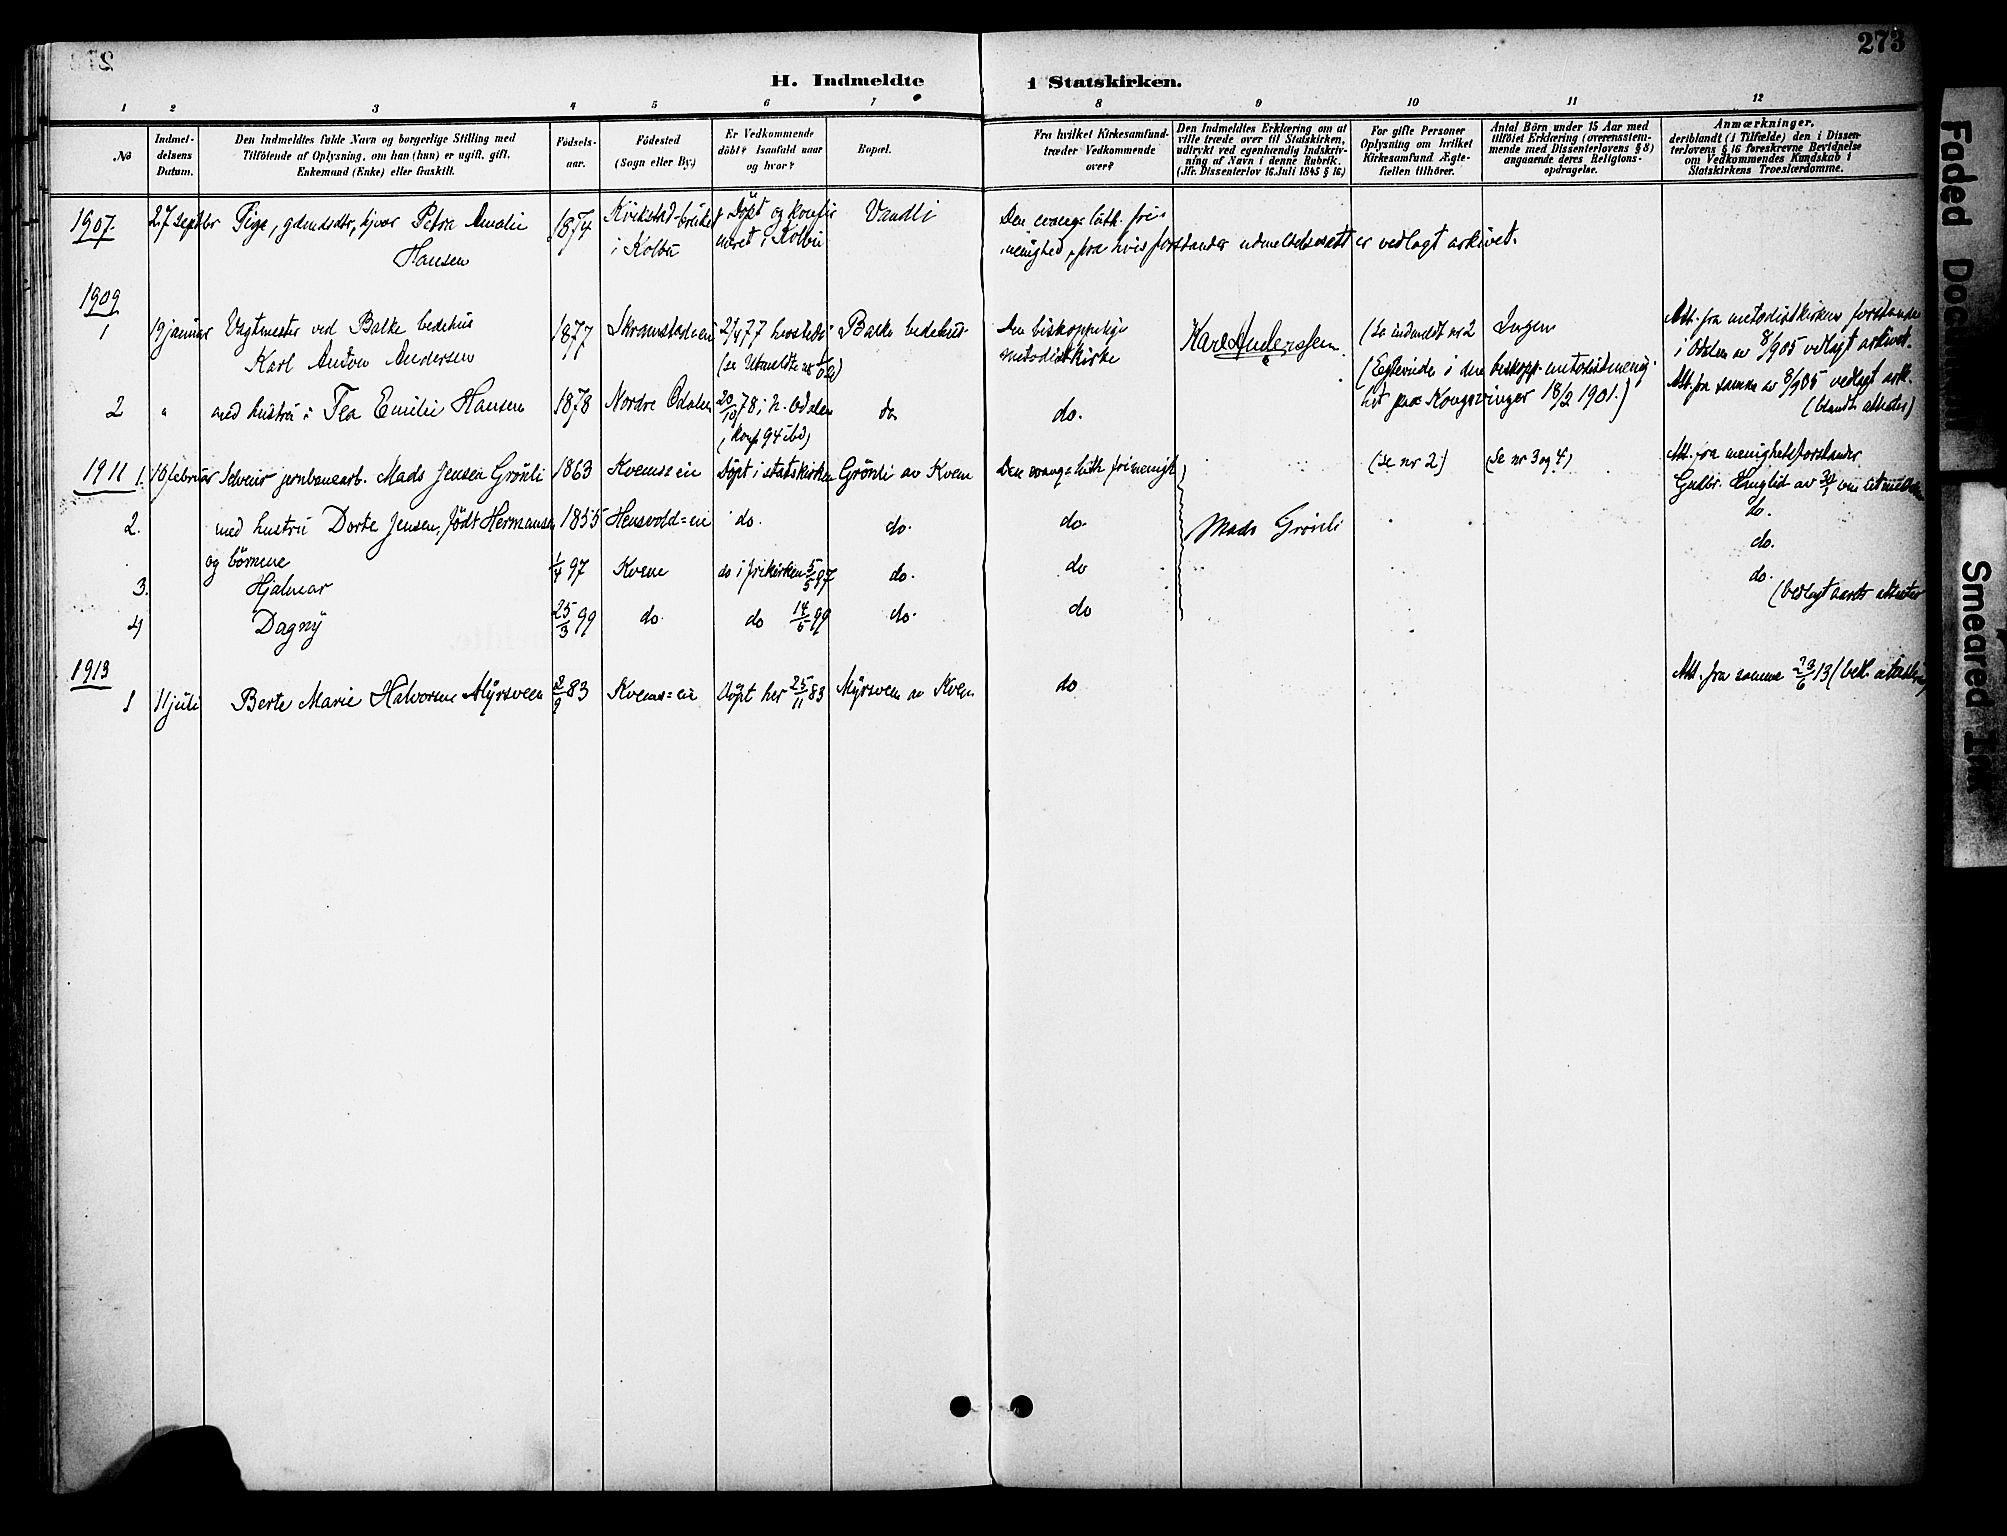 273
H. Indmeldte i Statskirken.
1 2 3 4 5 6 7 8 9 10 11 12
No
Indmel-
delsens
Datum.
Den Indmeldtes fulde Navn og borgerlige Stilling med
Tilföiende af Oplysning, om han (hun) er ugift, gift,
Enkemand (Enke) eller fraskilt.
Födsels-
aar.
Födested
(Sogn eller By.)
Er Vedkommende
döbt? Isaafald naar
og hvor?
Bopæl.
Fra hvilket Kirkesamfund-
træder Vedkommende
over?
Den Indmeldtes Erklæring om at
ville træde over til Statskirken,
udtrykt ved egenhændig Indskriv-
ning af Navn i denne Rubrik.
(Jfr. Dissenterlov 16. Juli 1845 § 16.)
For gifte Personer
Oplysning om hvilket
Kirkesamfund Ægte-
fællen tilhörer.
Antal Börn under 15 Aar med
tilföiet Erklæring (overensstem-
mende med Dissenterlovens § 8)
angaaende deres Religions-
opdragelse.
Anmærkninger,
deriblandt (i Tilfælde) den i Dissen-
terlovens § 16 foreskrevne Bevidnelse
om Vedkommendes Kundskab i
Statskirkens Troeslærdomme.
1907. 27 septbr Pige, gdmdsdtr, Petra Amalie
Hansen
1874
Kvikstad-bruket
i Kolbu
Döpt og konfir
meret i Kolbu
Vandli
Den evang. luth. fri-
menighed, fra hvis forstander udmeldelsesatt er vedlagt arkivet.
1909
1 19 januar Vagtmester ved Balke bedehus
Karl Anton Andersen
1877
Skramstad=eie
2/4 77 hersteds
(se Utmeldte
Balke bedehus
Den biskoppelige
metodistkirke
Karl Anderssen.
(se indmeldt nr 2
Ingen
Att. fra metodistkirkens forstander
i Odalen av 8/9 05 vedlagt arkivet.
2 " med hustru: Tea Emilie Hansen
1878
Nordre Odalen
20/10 78 i N. Odalen
, konf. 94 ibd)
do
do.
(Egteviede i den biskopp. metodistmenig-
het paa Kongsvinger 18/2 1901.)
Att. fra samme av 8/9 05 vedlagt ark.
(blandt attester)
1911 1. 10 februar Selveier jernbanearb. Mads Jensen Grönli
1863
Kvemseie
Döpt i statskirken
Grönli av Kvem
Den evang=luth frimenigh
(se nr 2)
(Se nr 3 og 4)
Att. fra menighetsforstander
2. med hustru Dorte Jensen, födt Hermansen
1855
Hensvold=eie
do.
do.
do.
Mads Grönli
do.
do.
og börnene
3. Hjalmar
1/4 97
Kvem
do i frikirken 5/5 97
do.
do
do.
(Vedlagt aarets attester
4) Dagny
25/3 99
do
do 14/5 99
do.
do
1913
1 11 juli Berte Marie Halvorsen Myrsveen
2/9 83
Kvems=eie
Döpt her 25/11 83
Myrsveen av Kvem
do
Att. fra samme /6 13 (vedl.
Faded Document
Smeared Ink